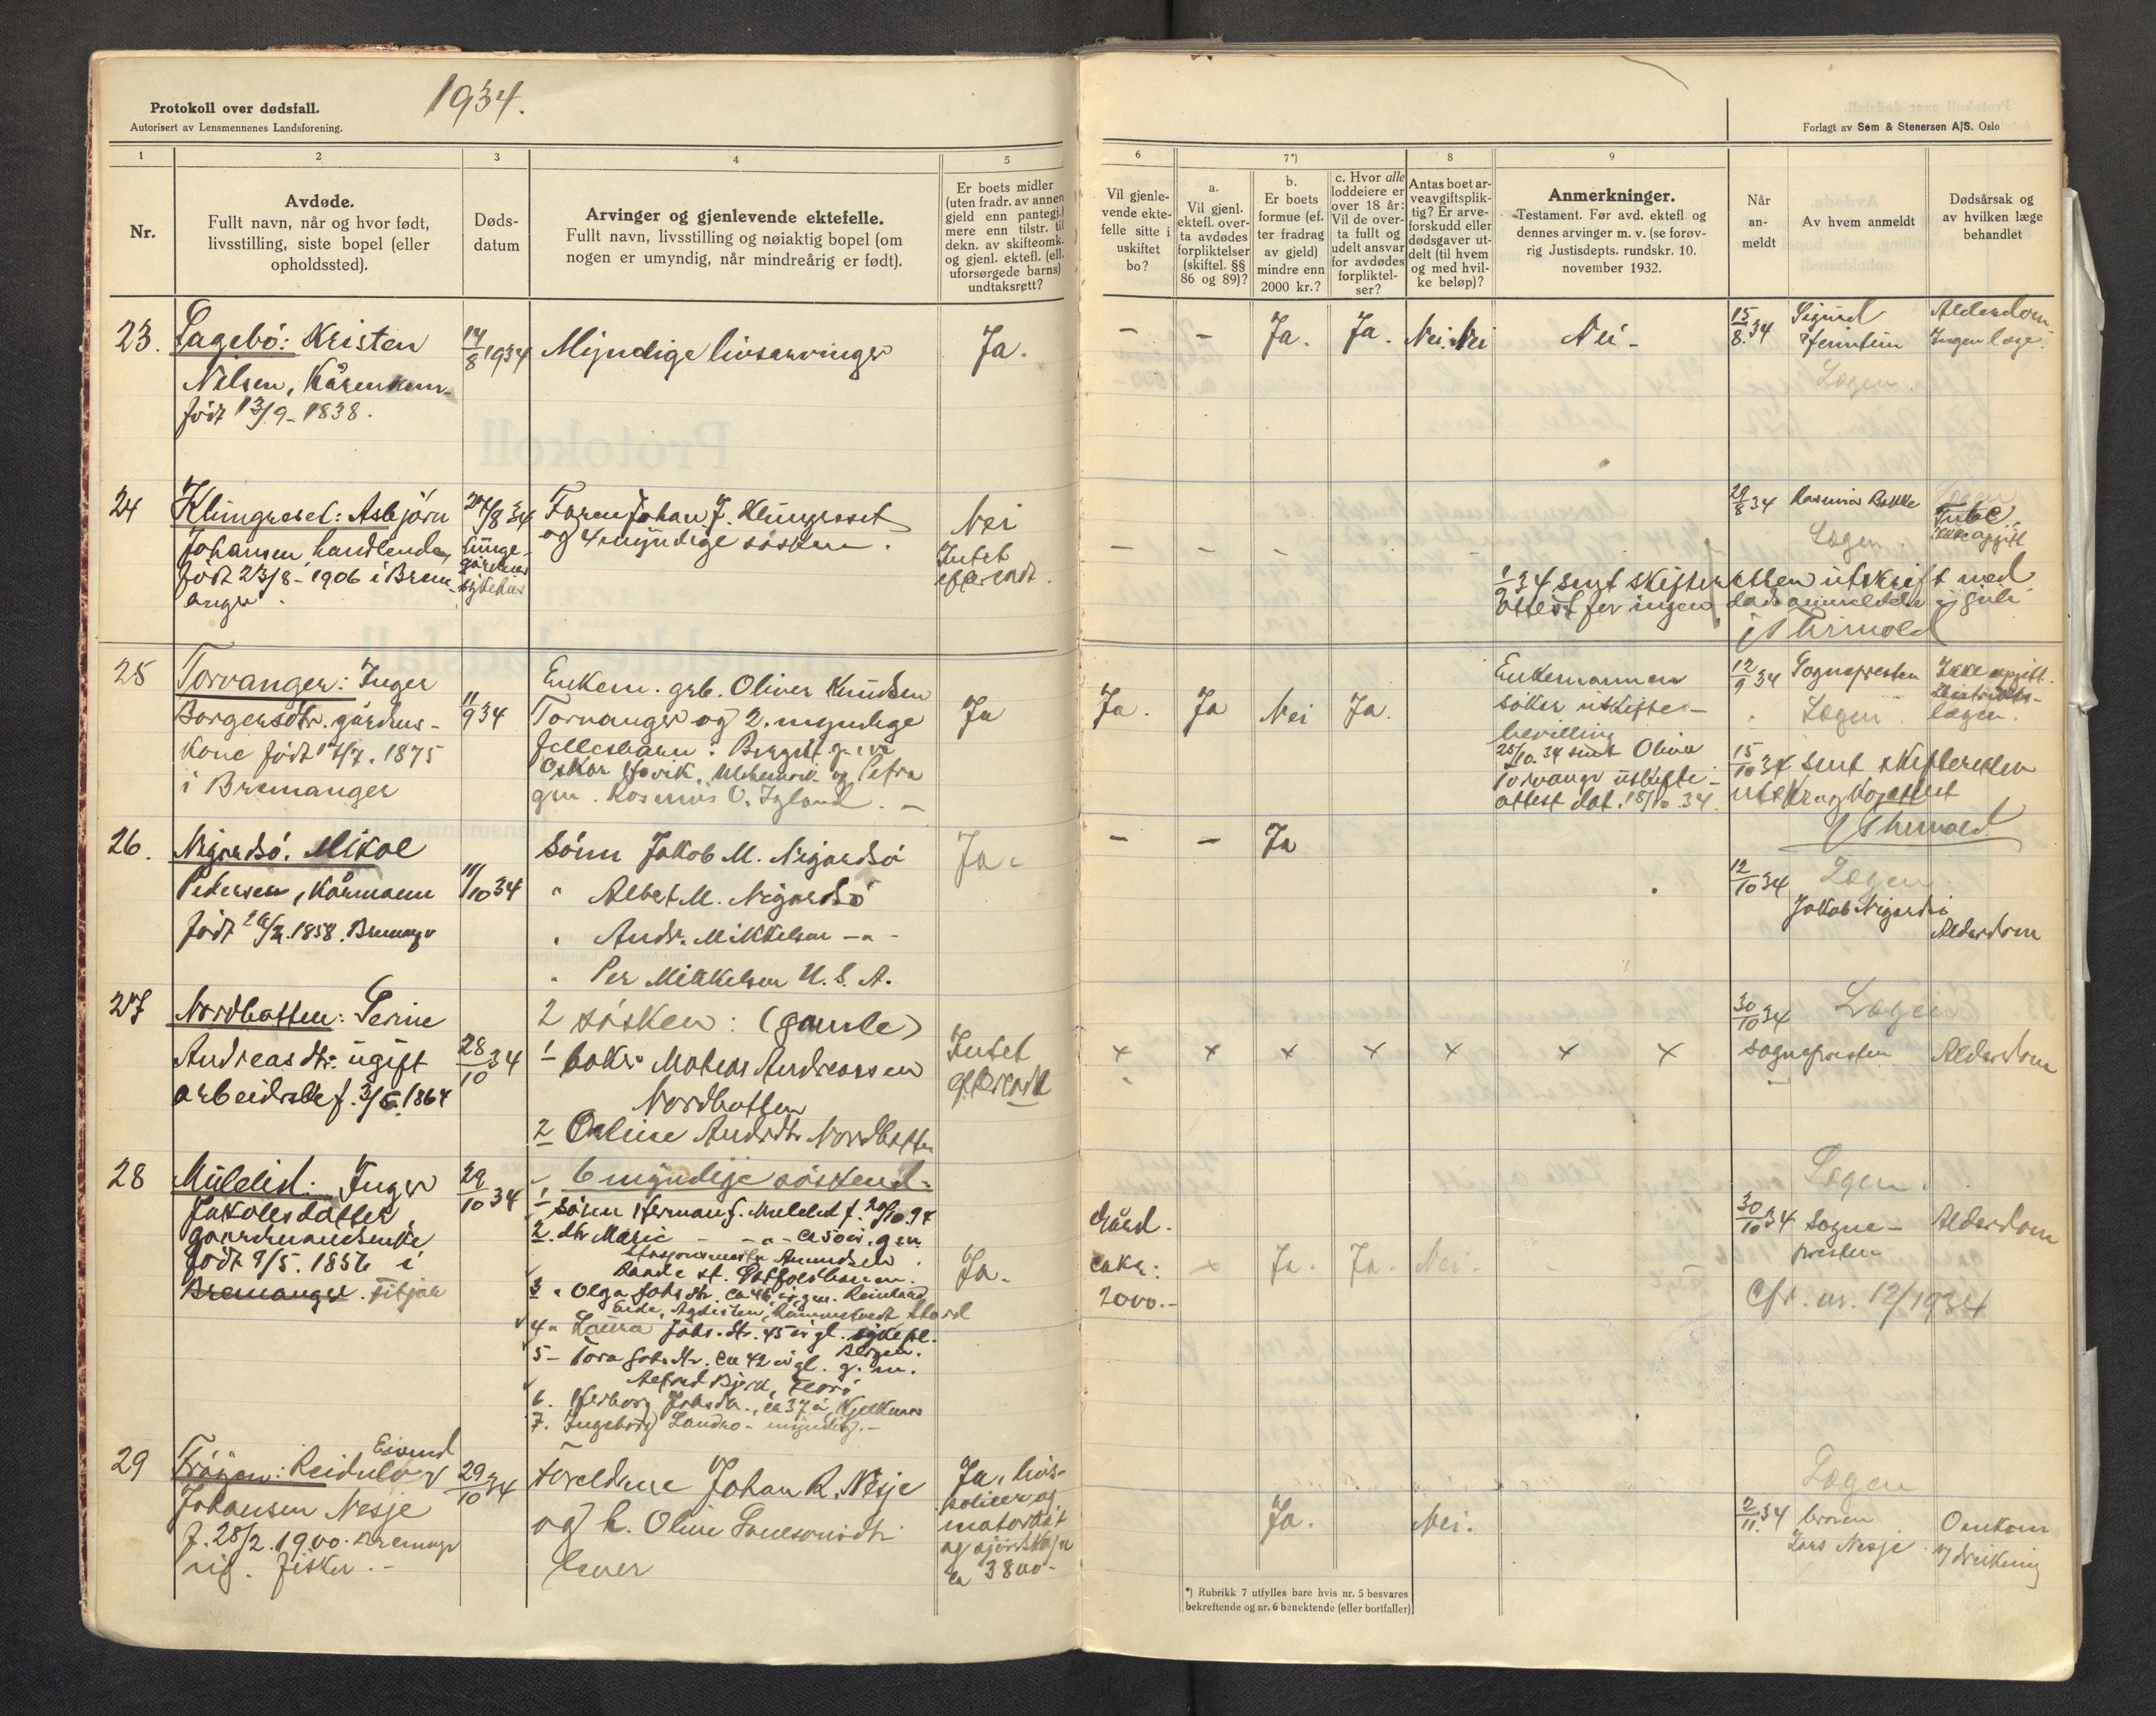 1934.
Protokoll over dødsfall.
Autorisert av Lensmennenes Landsforening.
Forlagt av Sem & Stenersen A/S. Oslo
1
2
3
4
5
6
7*)
8
9
Nr.
Avdøde.
Fullt navn, når og hvor født,
livsstilling, siste bopel (eller
opholdssted).
Døds-
datum
Arvinger og gjenlevende ektefelle.
Fullt navn, livsstilling og nøiaktig bopel (om
nogen er umyndig, når mindreårig er født).
Er boets midler
(uten fradr. av annen
gjeld enn pantegj.)
mere enn tilstr. til
dekn. av skifteomk.
og gjenl. ektefl. (ell.
uforsørgede barns)
undtaksrett?
Vil gjenle-
vende ekte-
felle sitte i
uskiftet
bo?
a.
Vil gjenl.
ektefl. over-
ta avdødes
forpliktelser
(skiftel. §§
86 og 89)?
b.
Er boets
formue (ef-
ter fradrag
av gjeld)
mindre enn
2000 kr.?
c. Hvor alle
loddeiere er
over 18 år:
Vil de over-
ta fullt og
udelt ansvar
for avdødes
forpliktel-
ser?
Antas boet ar-
veavgiftsplik-
tig? Er arve-
forskudd eller
dødsgaver ut-
delt (til hvem
og med hvil-
ke beløp)?
Anmerkninger.
Testament. Før avd. ektefl og
dennes arvinger m. v. (se forøv-
rig Justisdepts. rundskr. 10.
november 1932.
Når
an-
meldt
Av hvem anmeldt
Dødsårsak og
av hvilken læge
behandlet
23. Sagebö: Kristen
Nilsen, Kårenkem.
født 13/9-1838.
14/8 1934
Myndige livsarvinger
Ja.
-
-
Ja.
Ja.
Nei. Nei
Nei -
15/8 34
Sigurd
Alderdom.
Ingen læge.
24 Klungreset: Asbjörn
Johansen handlende,
født 23/8-1906 i Brem-
anger.
27/8 34
Faren Johan J. Klungreset
og 4 myndige søsken.
Nei
Intet
efterladt.
-
-
-
29/8 34
Rasmus Bakke
Tube.
Ikke opgift
sent skifteretten utskrift med
attest for ingen dødsanmeldelse i juli
25 Torvanger: Inger
Borgersdtr. gårdus-
kone født 17/7. 1875
i Bremanger
11/9 34
Enkem. grb. Oliver Knudsen
Torvanger og 2 myndige
fellesbarn: Bergit g.
Oskar Hovik, og Petra
gm. Rasmus O. Igland. -
Ja
Ja.
Ja
Nei
Ja.
Enkemannen
søker uskifte-
bevilling
25/10.34 sendt Oliver
Torvanger uskifte-
attest dat. 18/10 34.
12/9 34
Sognepresten
Ikke opgift.
Distrikts-
lægen.
15/10 34 sent skifteretten
26. Nigardsö. Mikal
Pedersen, Kårmann
født 1858. Bremanger
11/10 34
Sönn Jakob M. Nigardsö
" Albert M. Nigardsö
" Andr. Mikkelsen - " -
" Per Mikkelsen U. S. A.
Ja.
-
-
Ja
12/10 34
Jakob Nigardsö
Alderdom
27 Nordbotten: Perine
Andreasdtr: ugift
arbeiderske f. 3/5.1864
28/10 34
2 søsken: (gamle)
1 Mateas Andreassen
Nordbotten
2 Oeline Andrdtr Nordbotten
Intet
efterladt
x x x x x x x
30/10 34
Sognepresten
Alderdom
28 Mulelid: Inger
Jakobsdatter
gaardmandsenke
født 9/5. 1856 i
Bremanger. Fitjar
29/10 34
6 myndige søskend:
1 sønn Herman J. Mulelid f.
2. dtr Marie - " - ca 50 år. gm.
Stasjonsmester Amundsen
Raade st. Østfoldbanen.
3 " Olga Johsdtr. ca 46 år gm. Reinhard
4 " Laura Johs. dtr. 45 år gl. sykepl.
Bergen.
5 - Tora Johs dtr. ca 42 år gl. g. m.
Alfred Bjørk, Florö
6. Herborg Johsdtr., ca 37 år, Kjelkenes
7. Ingeborg Landro - myndig. -
Ja.
Gård.
ca kr:
2000.-
x
Ja.
Ja.
Nei.
30/10 34
Sogne-
presten
Alderdom
Cfr. nr. 12/1934
29 Fröyen: Reidulv
Eivind
Johansen Nesje
f. 28/2.1900. Bremanger
ug. fisker. -
29/10 34
Foreldrene Johan R. Nesje
og h. Oline
lever
Ja, livs-
policer og
ca 3800-
Ja.
Nei.
2/11 34
broren
Lars Nesje
Omkom
v/ drukning
*) Rubrikk 7 utfylles bare hvis nr. 5 besvares
bekreftende og nr. 6 benektende (eller bortfaller)